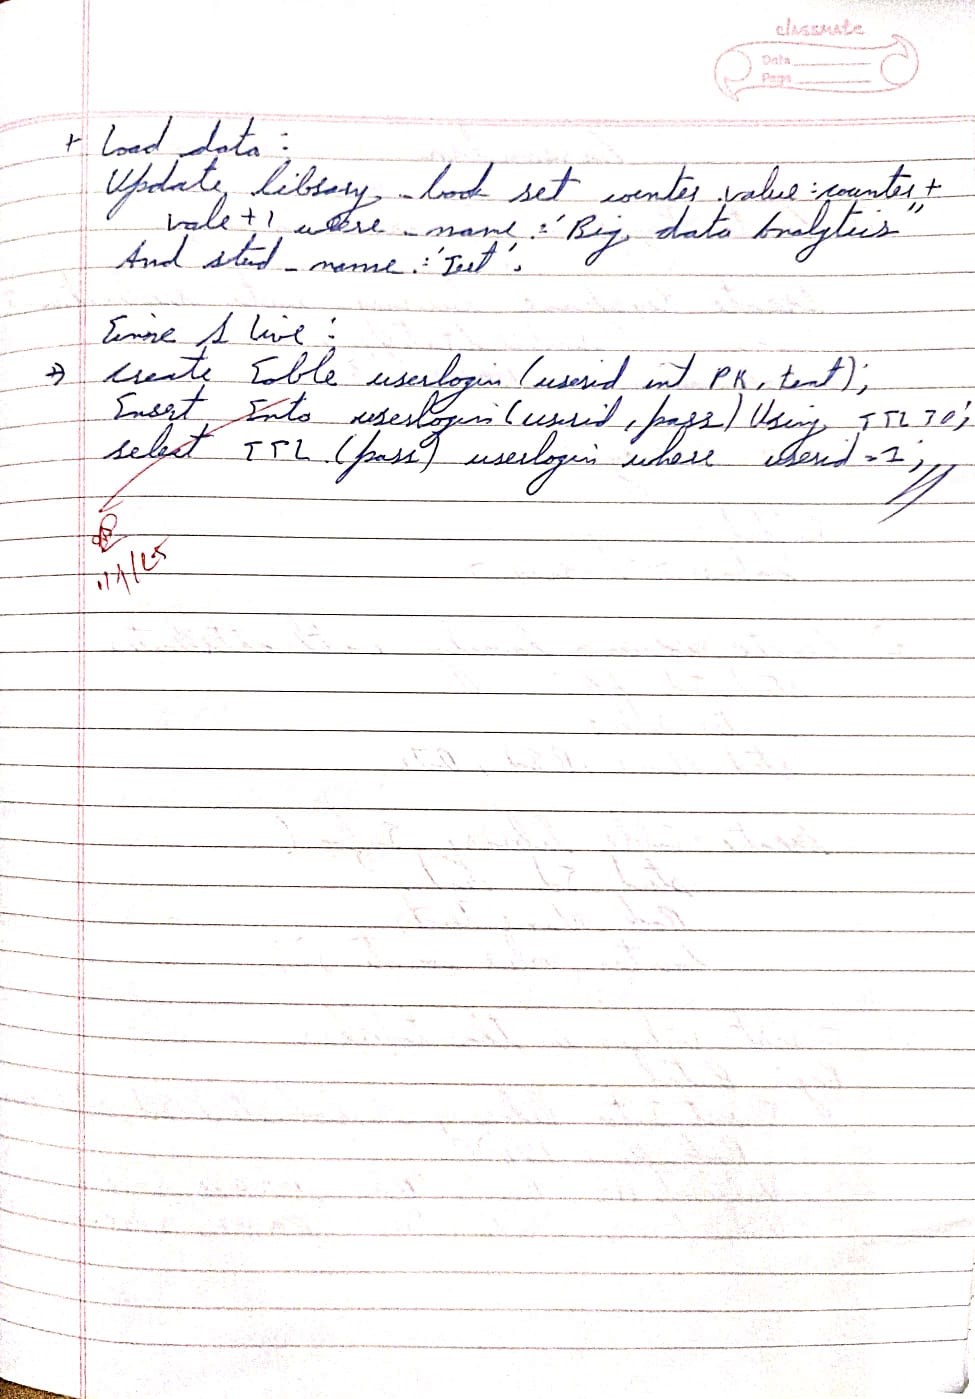 classmate
Date
Page
+ Load data :
Update library _ book set counter value = counter +
vale +1 where _ name = 'Big data Analytics"
And stud _ name = 'Jeet'.
live :
→ create Table userlogin (userid int PK, text);
Insert Into userlogin (userid, pass) Using TTL 30;
select TTL (pass) userlogin where userid = 1;